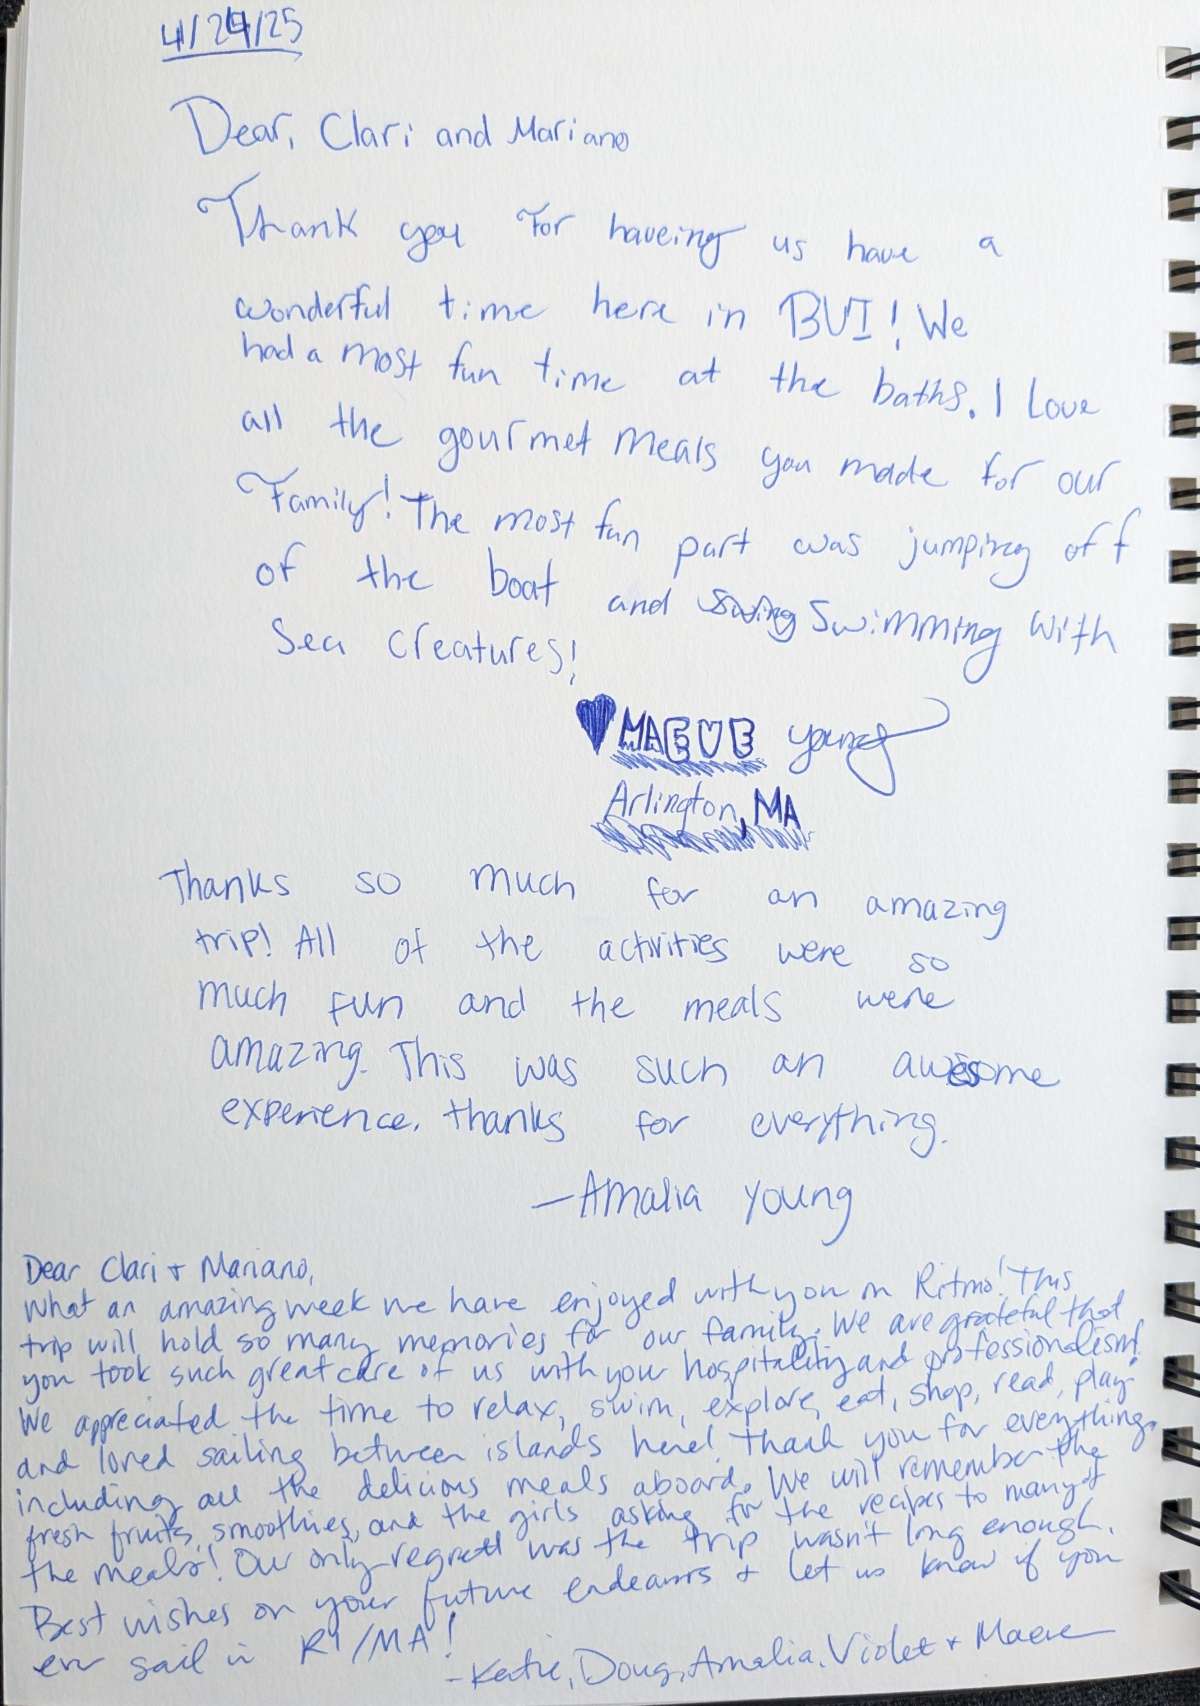 4/24/25
Dear, Clari and Mariano
Thank you For haveing us have a
wonderful time here in BVI! We
had a most fun time at the baths. I Love
all the gourmet meals you made for our
Family! The most fun part was jumping off
of the boat and swimming with
Sea Creatures!
MAEVE young
Arlington, MA
Thanks so much for an amazing
trip! All of the activities were so
much fun and the meals were
amazing. This was such an awesome
experience. Thanks for everything.
—Amalia Young
Dear Clari + Mariano,
What an amazing week we have enjoyed with you on Ritmo! This
trip will hold so many memories for our family. We are grateful that
you took such great care of us with your hospitality and professionalism!
We appreciated the time to relax, swim, explore, eat, shop, read, play
and loved sailing between islands here! Thank you for everything,
including all the delicious meals aboard. We will remember the
fresh fruits, smoothies, and the girls asking for the recipes to many of
the meals! Our only regrett was the trip wasn't long enough.
Best wishes on your future endeavors + let us know if you
ever sail in RI/MA!
-Katie, Doug, Amalia, Violet + Maeve